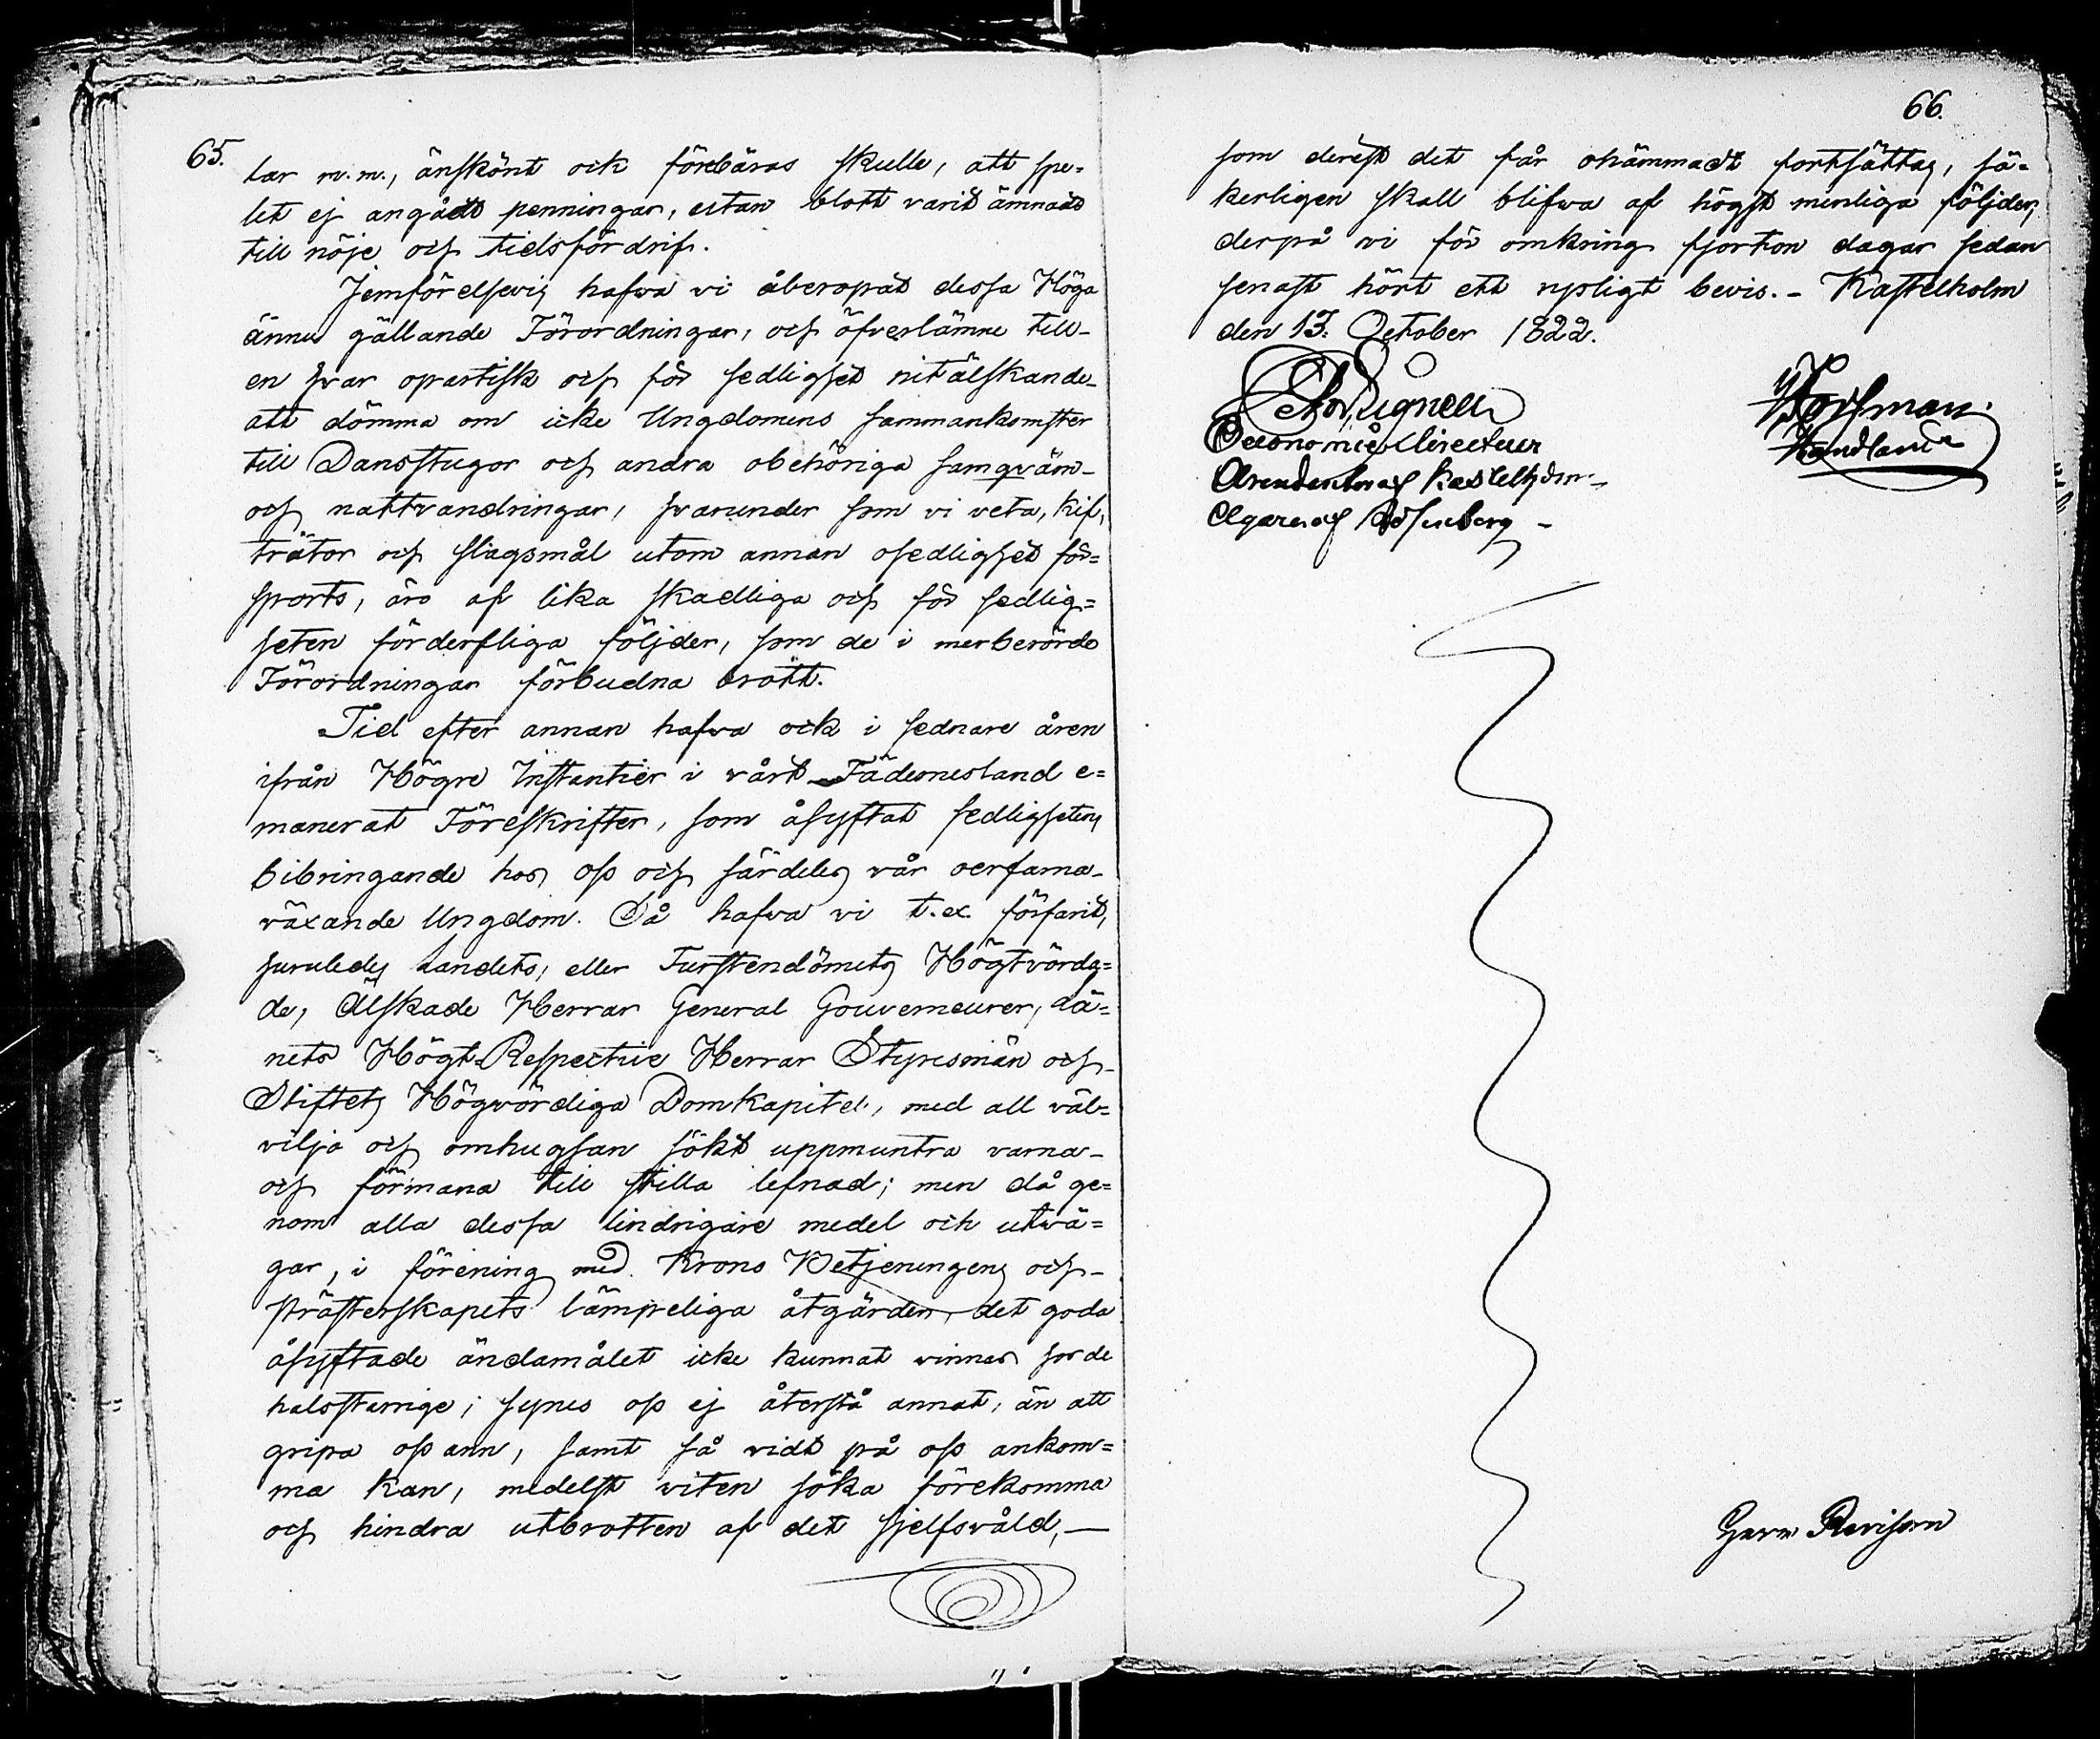 65.
tar m.m., änskönt ock förebäras skulle, att spe-
let ej angådt penningar, utan blott varit ämnadt
till nöje och tidsfördrif.
Jemförelsevis hafva vi åberopat dessa Höga
ännu gällande Förordningar, och öfverlämne till-
en hvar opartisk och för sedlighet nitälskande
att dömma om icke Ungdomens sammankomster
till Dansstugor och andra obehöriga samqväm
och nattvandringar, hvarunder som vi veta, kif,
trätor och slagsmål utom annan osedlighet för-
sports, äro af lika skadliga och för sedlig-
heten förderfliga följder, som de i merberörde
Förordningar förbudna brott.
Tid efter annan hafva ock i sednare åren
ifrån Högre Instantier i vårt Fädernesland e-
manerat Föreskrifter, som åsyftat sedlighetens
bibringande hos oss och särdeles vår oerfarna
växande Ungdom. Så hafva vi t.ex. förfarit,
huruledes Landets, eller Furstendömets Högtvörda-
de, Älskade Herrar General Gouverneurer, Lä-
nets Högt Respective Herrar Styresmän och
Stiftets Högvördiga Domkapitel, med all väl-
vilja och omhugsan sökt uppmuntra varna
och förmana till stilla lefnad; men då ge-
nom alla dessa lindrigare medel och utwä-
gar, i förening med Krono Betjeningens och
Prästerskapets lämpeliga åtgärder, det goda
åsyftade ändamålet icke kunnat vinnas hos de
halsstarrige; synes oss ej återstå annat, än att
gripa oss ann, samt så vidt på oss ankom-
ma kan, medelst viten söka förekomma
och hindra utbrotten af det sjelfsvåld,
66.
som derest det får ohämmadt fortsättas, sä-
kerligen skall blifwa af högst menliga följder,
derpå vi för omkring fjorton dagar sedan
senast hört ett rysligt bevis. - Kastelholm
den 13. October 1822.
Oeconomie Directeur
Arendator af Kastelholm
Ägare af
Handlande
Herr Revisorn